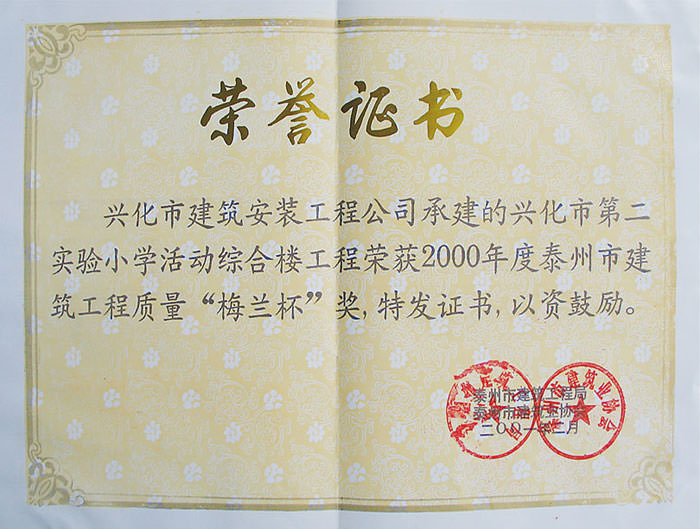 荣誉证书
兴化市建筑安装工程公司承建的兴化市第二
实验小学活动综合楼工程荣获2000年度泰州市建
筑工程质量“梅兰杯”奖,特发证书,以资鼓励。
泰州市建筑工程局
泰州市建筑业协会
二〇〇一年二月